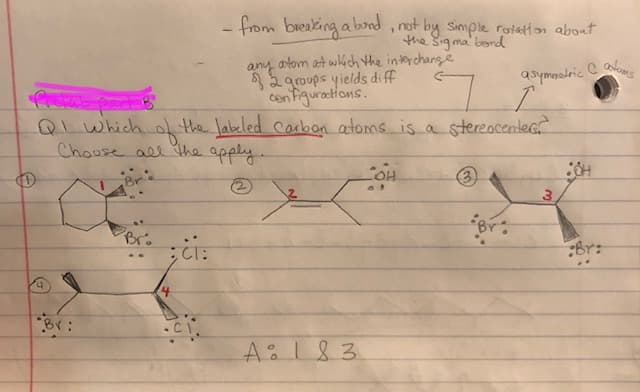 - from breaking a bond, not by simple rotation about
the sigma bond
- any atom at which the interchange
of 2 groups yields diff
configurations.
asymmetric C atoms
Q1 Which of the labeled carbon atoms is a stereocenter?
Choose all the apply.
① 1 Br
Br
② 2 OH
③ 3 OH
Br
Br
④ 4 Cl
Br
Cl
A: 1 & 3